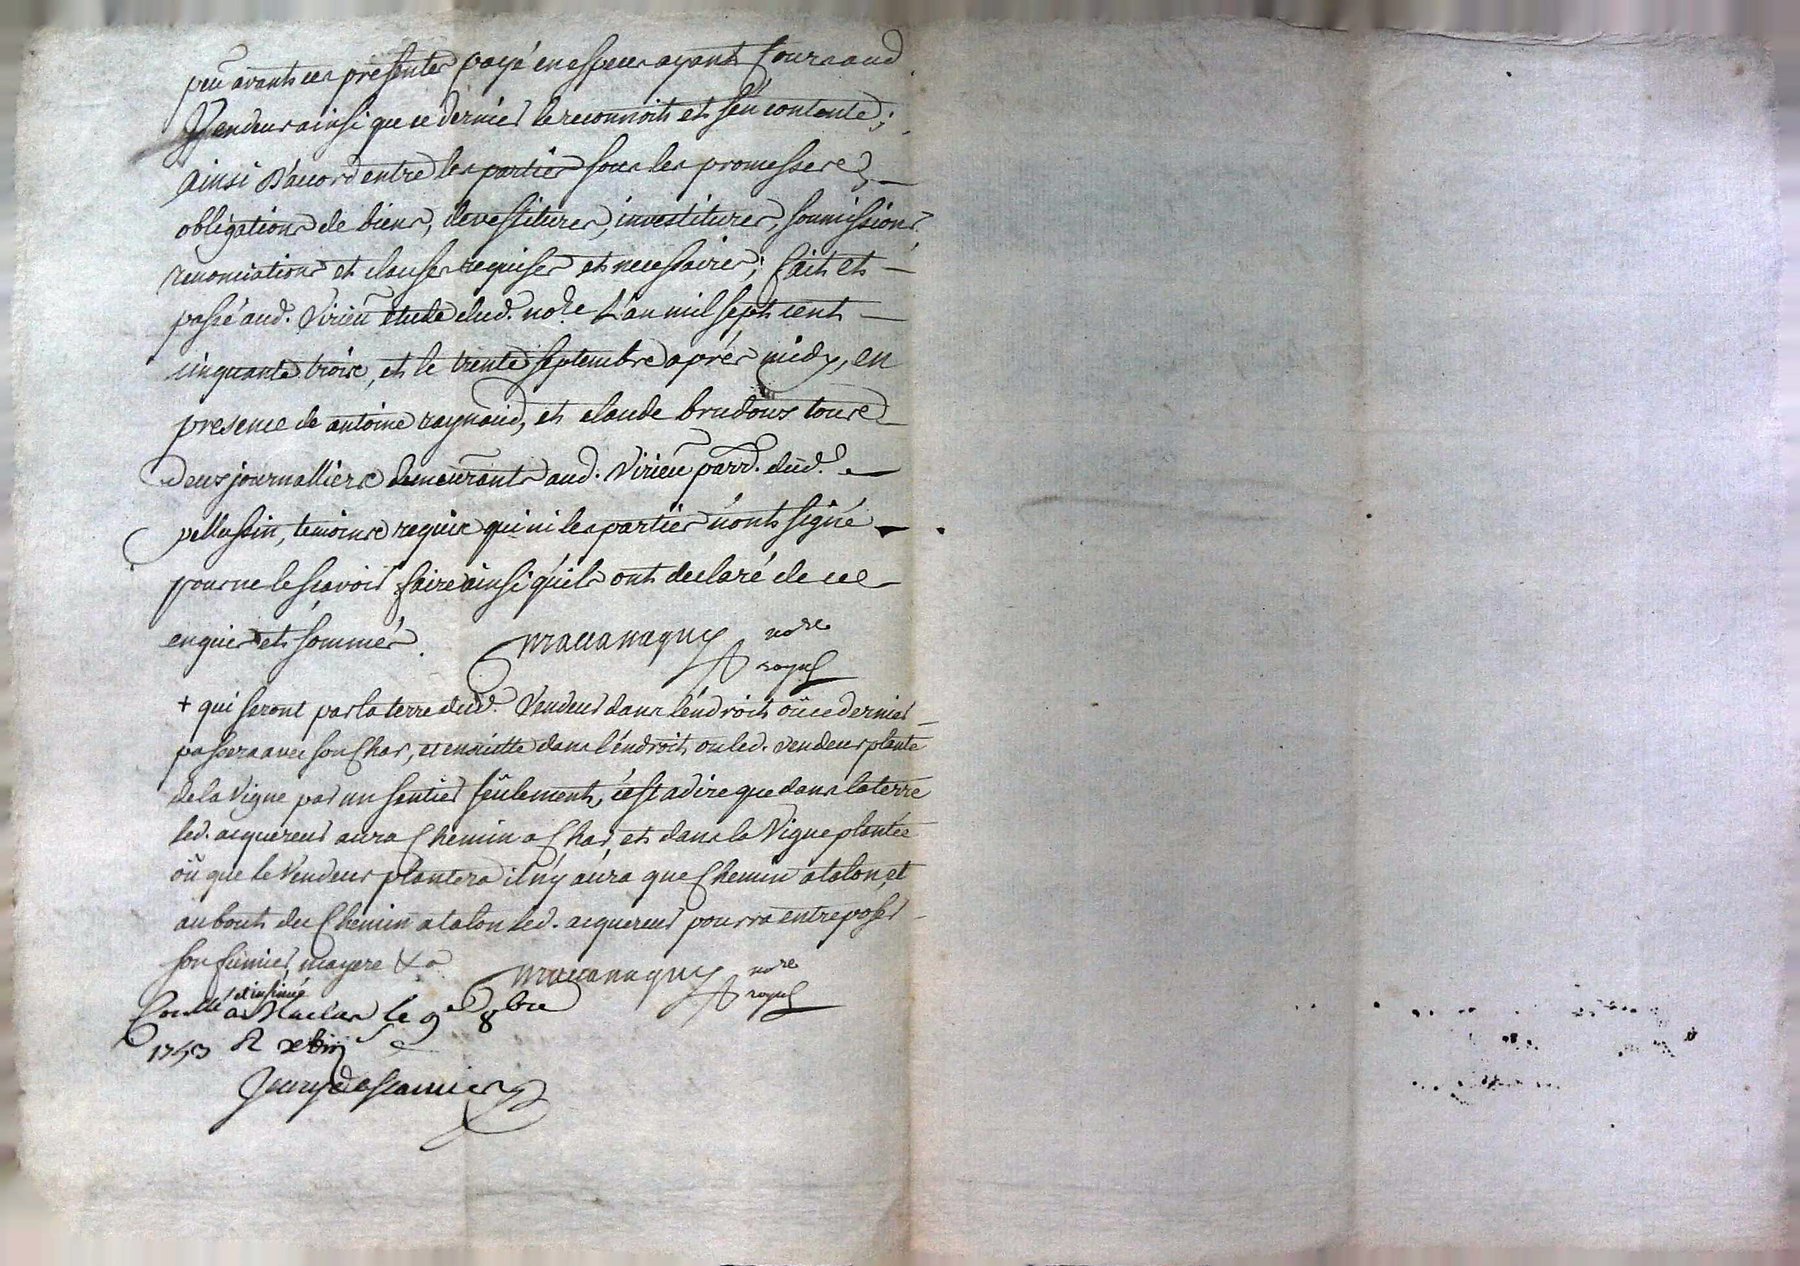 peu avant ces presentes payé en especes ayant cours aud.
Vendeur ainsi que ce dernier le reconnoit et s'en contente;
ainsi d'accord entre les parties sous les promesses, —
obligations de biens, devestitures, investitures, soumissions,
renonciations et clauses requises et necessaires; fait et —
passé aud. Virieu etude dud. no.re L'an mil sept cent —
cinquante trois, et le trente septembre après midy, en
presence de antoine raynaud, et claude brudoux tous
deux journalliers demeurants aud. Virieu parr. dud. —
pellussin, temoins requis qui ni les parties n'ont signé —
pour ne le sçavoir faire ainsi qu'ils ont declaré de ce
enquis et sommés.
no.re
royal
+ qui seront par la terre dud. Vendeur dans l'endroit où ce dernier
passera avec son Char, et ensuitte dans l'endroit ou led. vendeur plante
de la Vigne par un sentier seulement, c'est a dire que dans la terre
led. acquereur aura Chemin a Char, et dans la Vigne plantée
où que le Vendeur plantera il n'y aura que Chemin a talon, et
au bout du Chemin a talon led. acquereur pourra entreposer
son fumier, &.a
no.re
royal
et insinué
Con.llé à Maclas le 9e 8bre
1753 R